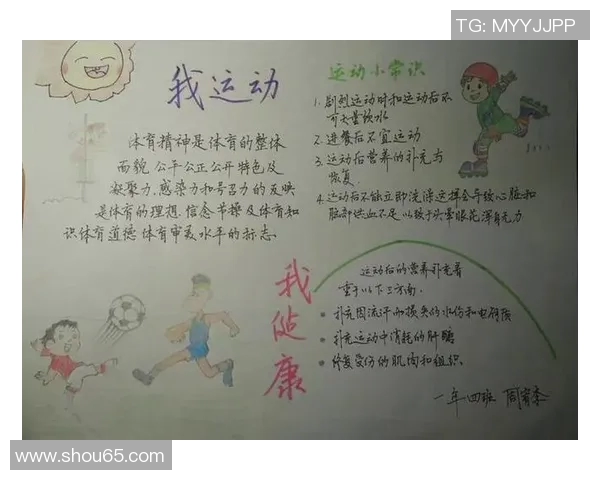 TG: MYYJJPP
我运动
体育精神是体育的整体
面貌 公平公正公开特色及
凝聚力.感染力和号召力的反映
是体育的理想.信念节操及体育知
识体育道德 体育审美水平的标志.
运动小常识
1. 剧烈运动时和运动后不
可大量饮水
2. 进餐后不宜运动
3. 运动后营养的补充与
恢复.
4. 运动后不能立即洗澡这样会导致心脏和
脑部供血不足 以致于头晕眼花浑身无力
我健康
运动后的营养补充着
重于以下三方面.
补充因流汗而损失的水份和电解质
补充运动中消耗的肝醣
修复受伤的肌肉和组织.
一年四班
www.shou65.com